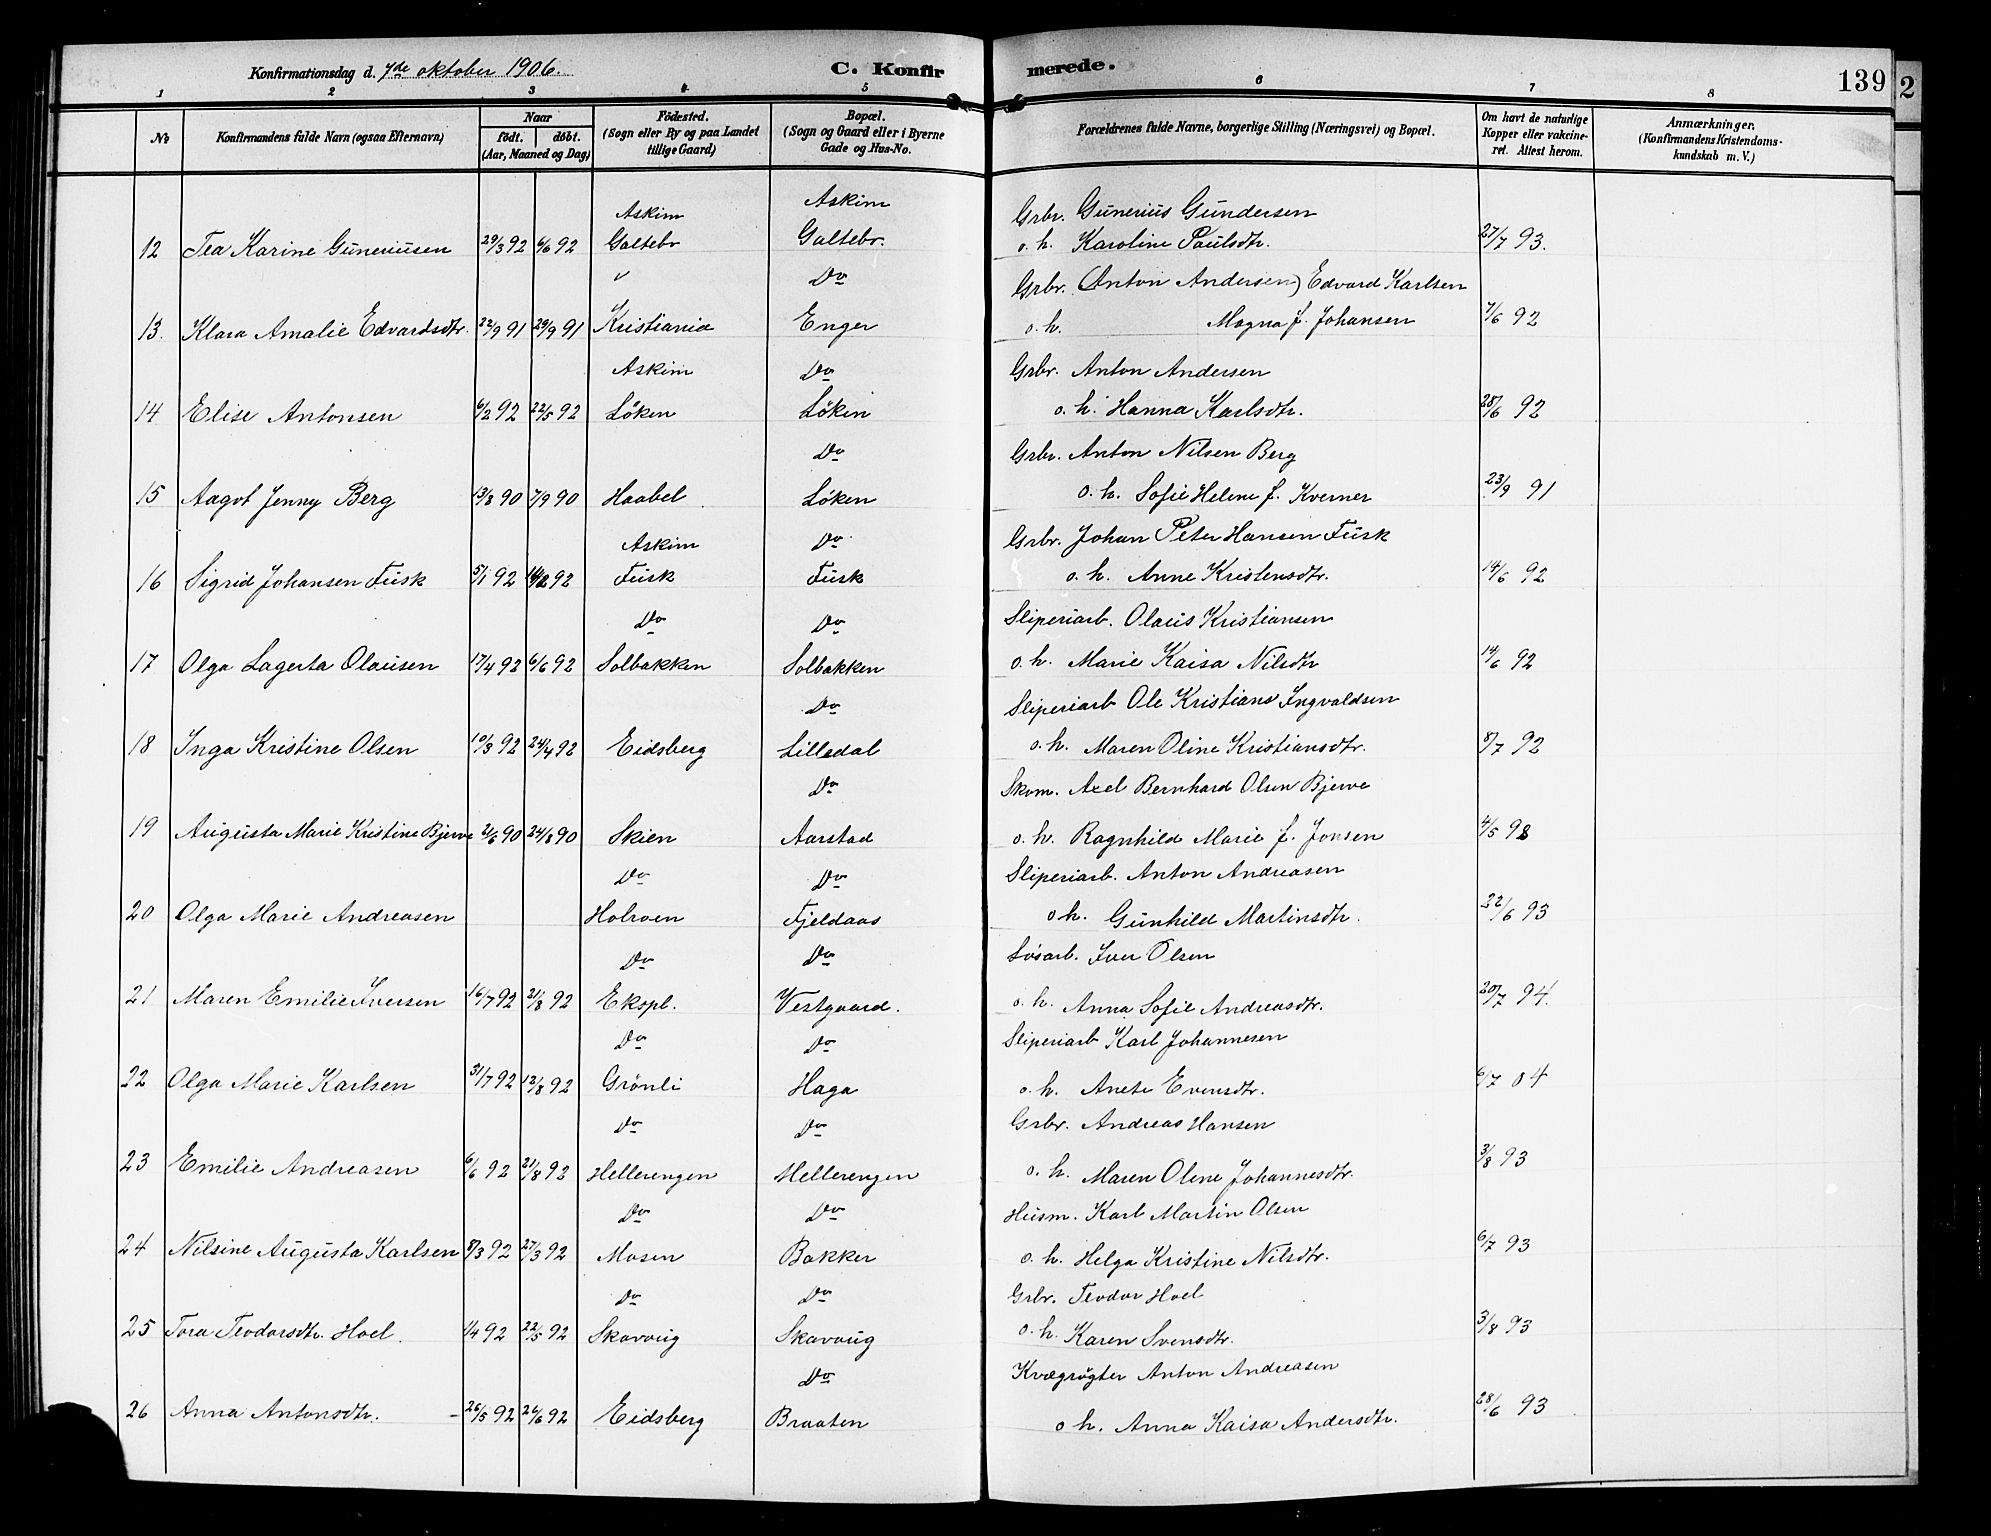 Konfirmationsdag d. 7de oktober 1906. C. Konfirmerede. 139 2
1 2 3 4 5 6 7 8
No Konfirmandens fulde Navn (ogsaa Efternavn) Naar født. døbt. (Aar, Maaned og Dag) Fødested. (Sogn eller By og paa Landet tillige Gaard) Bopæl. (Sogn og Gaard eller i Byerne Gade og Hus-No. Forældrenes fulde Navne, borgerlige Stilling (Næringsvei) og Bopæl. Om havt de naturlige Kopper eller vakcineret. Attest herom. Anmærkninger. (Konfirmandens Kristendomskundskab m. V.)
Askim Askim Grbr. Gunerius Gundersen
12 Tea Karine Guneriusen 29/3 92 6/6 92 Galtebr Galtebr. o. h. Karoline Paulsdtr. 27/7 93.
" Do Grbr. (Anton Andersen) Edvard Karlsen
13. Klara Amalie Edvardsdtr. 22/9 91 29/9 91 Kristiania Enger o. h. Magna f. Johansen 7/6 92
Askim Do Grbr. Anton Andersen
14 Elise Antonsen 6/2 92 22/5 92 Løken Løken o. h. Hanna Karlsdtr. 28/6 92
Do Grbr. Anton Nilsen Berg
15 Aagot Jenny Berg 13/8 90 7/9 90 Haabel Løken o. h. Sofie Helene f. Kverner 23/9 91
Askim Do Grbr. Johan Peter Hansen Fusk
16 Sigrid Johansen Fusk 5/1 92 14/2 92 Fusk Fusk o. h. Anne Kristensdtr. 14/6 92
Do Do Sliperiarb. Olaus Kristiansen
17 Olga Lagerta Olausen 17/4 92 6/6 92 Solbakken Solbakken o. h. Marie Kaisa Nilsdtr 14/6 92
Do Sliperiarb Ole Kristians Ingvaldsen
18 Inga Kristine Olsen 10/3 92 24/4 92 Eidsberg Lilledal o. h. Maren Oline Kristiansdtr. 8/7 92
Do Skom. Axel Bernhard Olsen Bjerve
19 Augusta Marie Kristine Bjerve 21/6 90 24/8 90 Skien Aarstad o. h. Ragnhild Marie f. Jonsen 4/5 98
Do Do Sliperiarb. Anton Andreasen
20 Olga Marie Andreasen Holroen Fjeldaas o h. Gunhild Martinsdtr. 22/6 93
Do Do Løsarb. Iver Olsen
21 Maren Emilie Iversen 16/7 92 21/8 92 Ekspl. Vestgaard. o. h. Anna Sofie Andreasdtr. 20/7 94.
Do Do Sliperiarb Karl Johannesen
22 Olga Marie Karlsen 31/7 92 12/8 92 Grønli Haga o. h. Anete Evensdtr. 6/7 04
Do Do Grbr. Andreas Hansen
23 Emilie Andreasen 6/6 92 21/8 92 Hellerengen Hellerengen o. h. Maren Olene Johannesdtr. 3/8 93
Do Do Husm. Karl Martin Olsen
24 Nilsine Augusta Karlsen 8/3 92 27/3 92 Mosen Bakker o. h. Helga Kristine Nilsdtr. 6/7 93
Do Do Grbr. Teodor Hoel
25 Tora Teodorsdtr. Hoel. 1/4 92 22/5 92 Skavoug Skavoug o. h. Karen Svensdtr. 3/8 93
Do Kvægrøgter Anton Andreasen
26 Anna Antonsdtr. - 26/5 92 26/6 92 Eidsberg Braaten o h. Anna Kaisa Andersdtr. 28/6 93